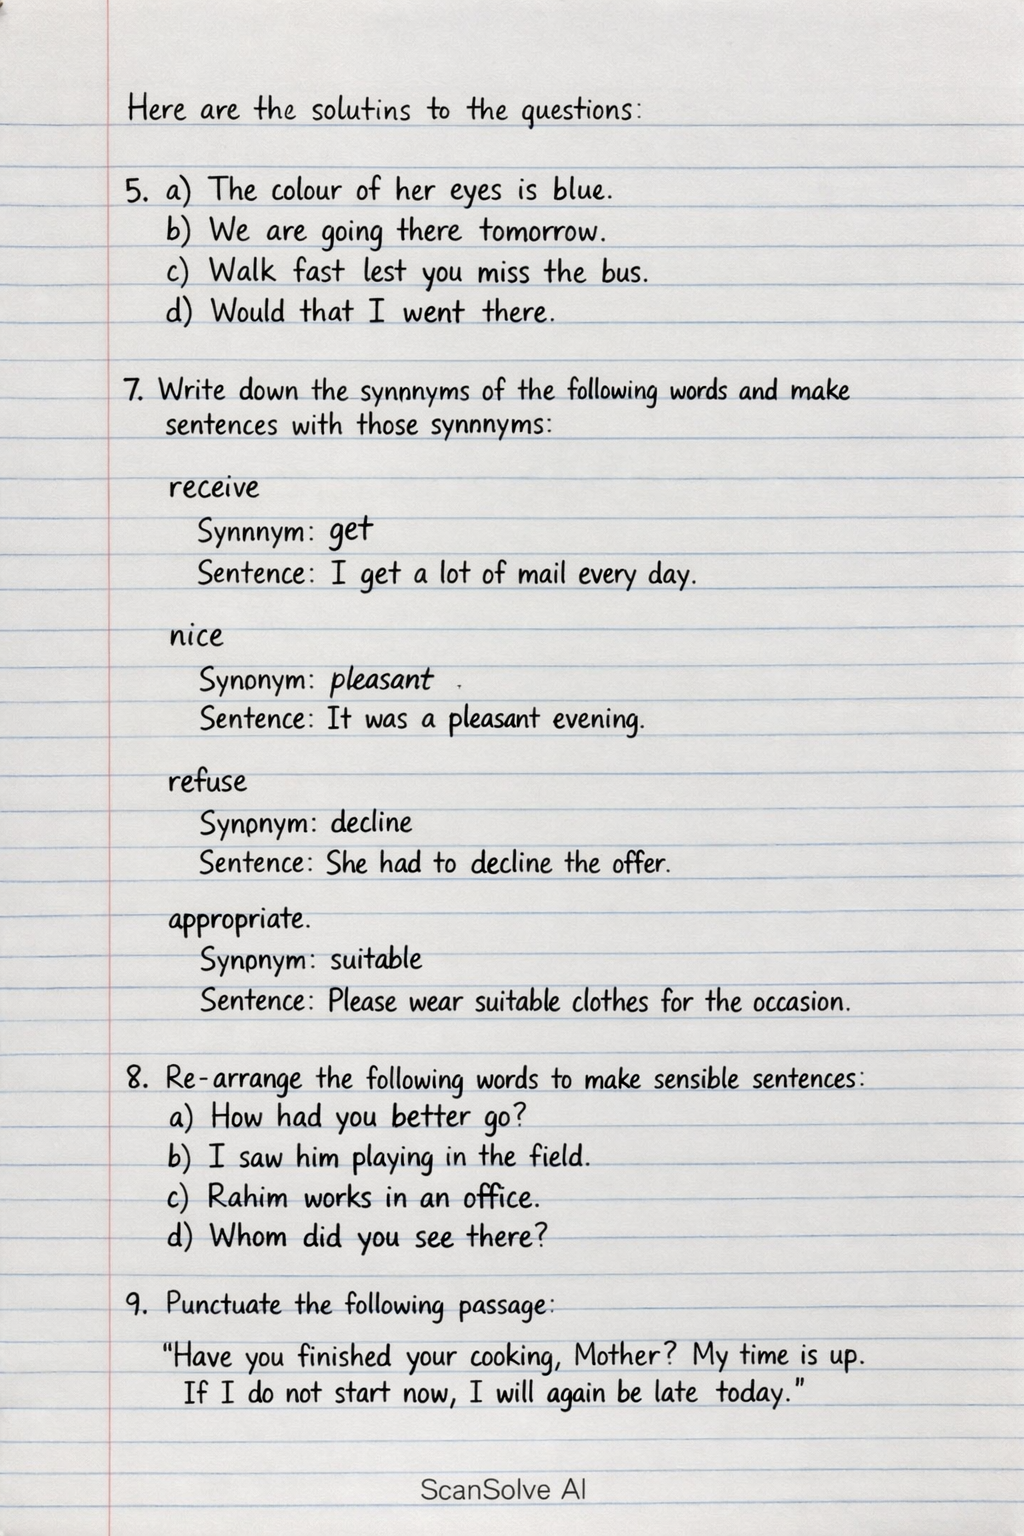 Here are the solutins to the questions:
5. a) The colour of her eyes is blue.
b) We are going there tomorrow.
c) Walk fast lest you miss the bus.
d) Would that I went there.
7. Write down the synnnyms of the following words and make
sentences with those synnnyms:
receive
Synnnym: get
Sentence: I get a lot of mail every day.
nice
Synonym: pleasant
Sentence: It was a pleasant evening.
refuse
Synonym: decline
Sentence: She had to decline the offer.
appropriate.
Synonym: suitable
Sentence: Please wear suitable clothes for the occasion.
8. Re-arrange the following words to make sensible sentences:
a) How had you better go?
b) I saw him playing in the field.
c) Rahim works in an office.
d) Whom did you see there?
9. Punctuate the following passage:
"Have you finished your cooking, Mother? My time is up.
If I do not start now, I will again be late today."
ScanSolve AI